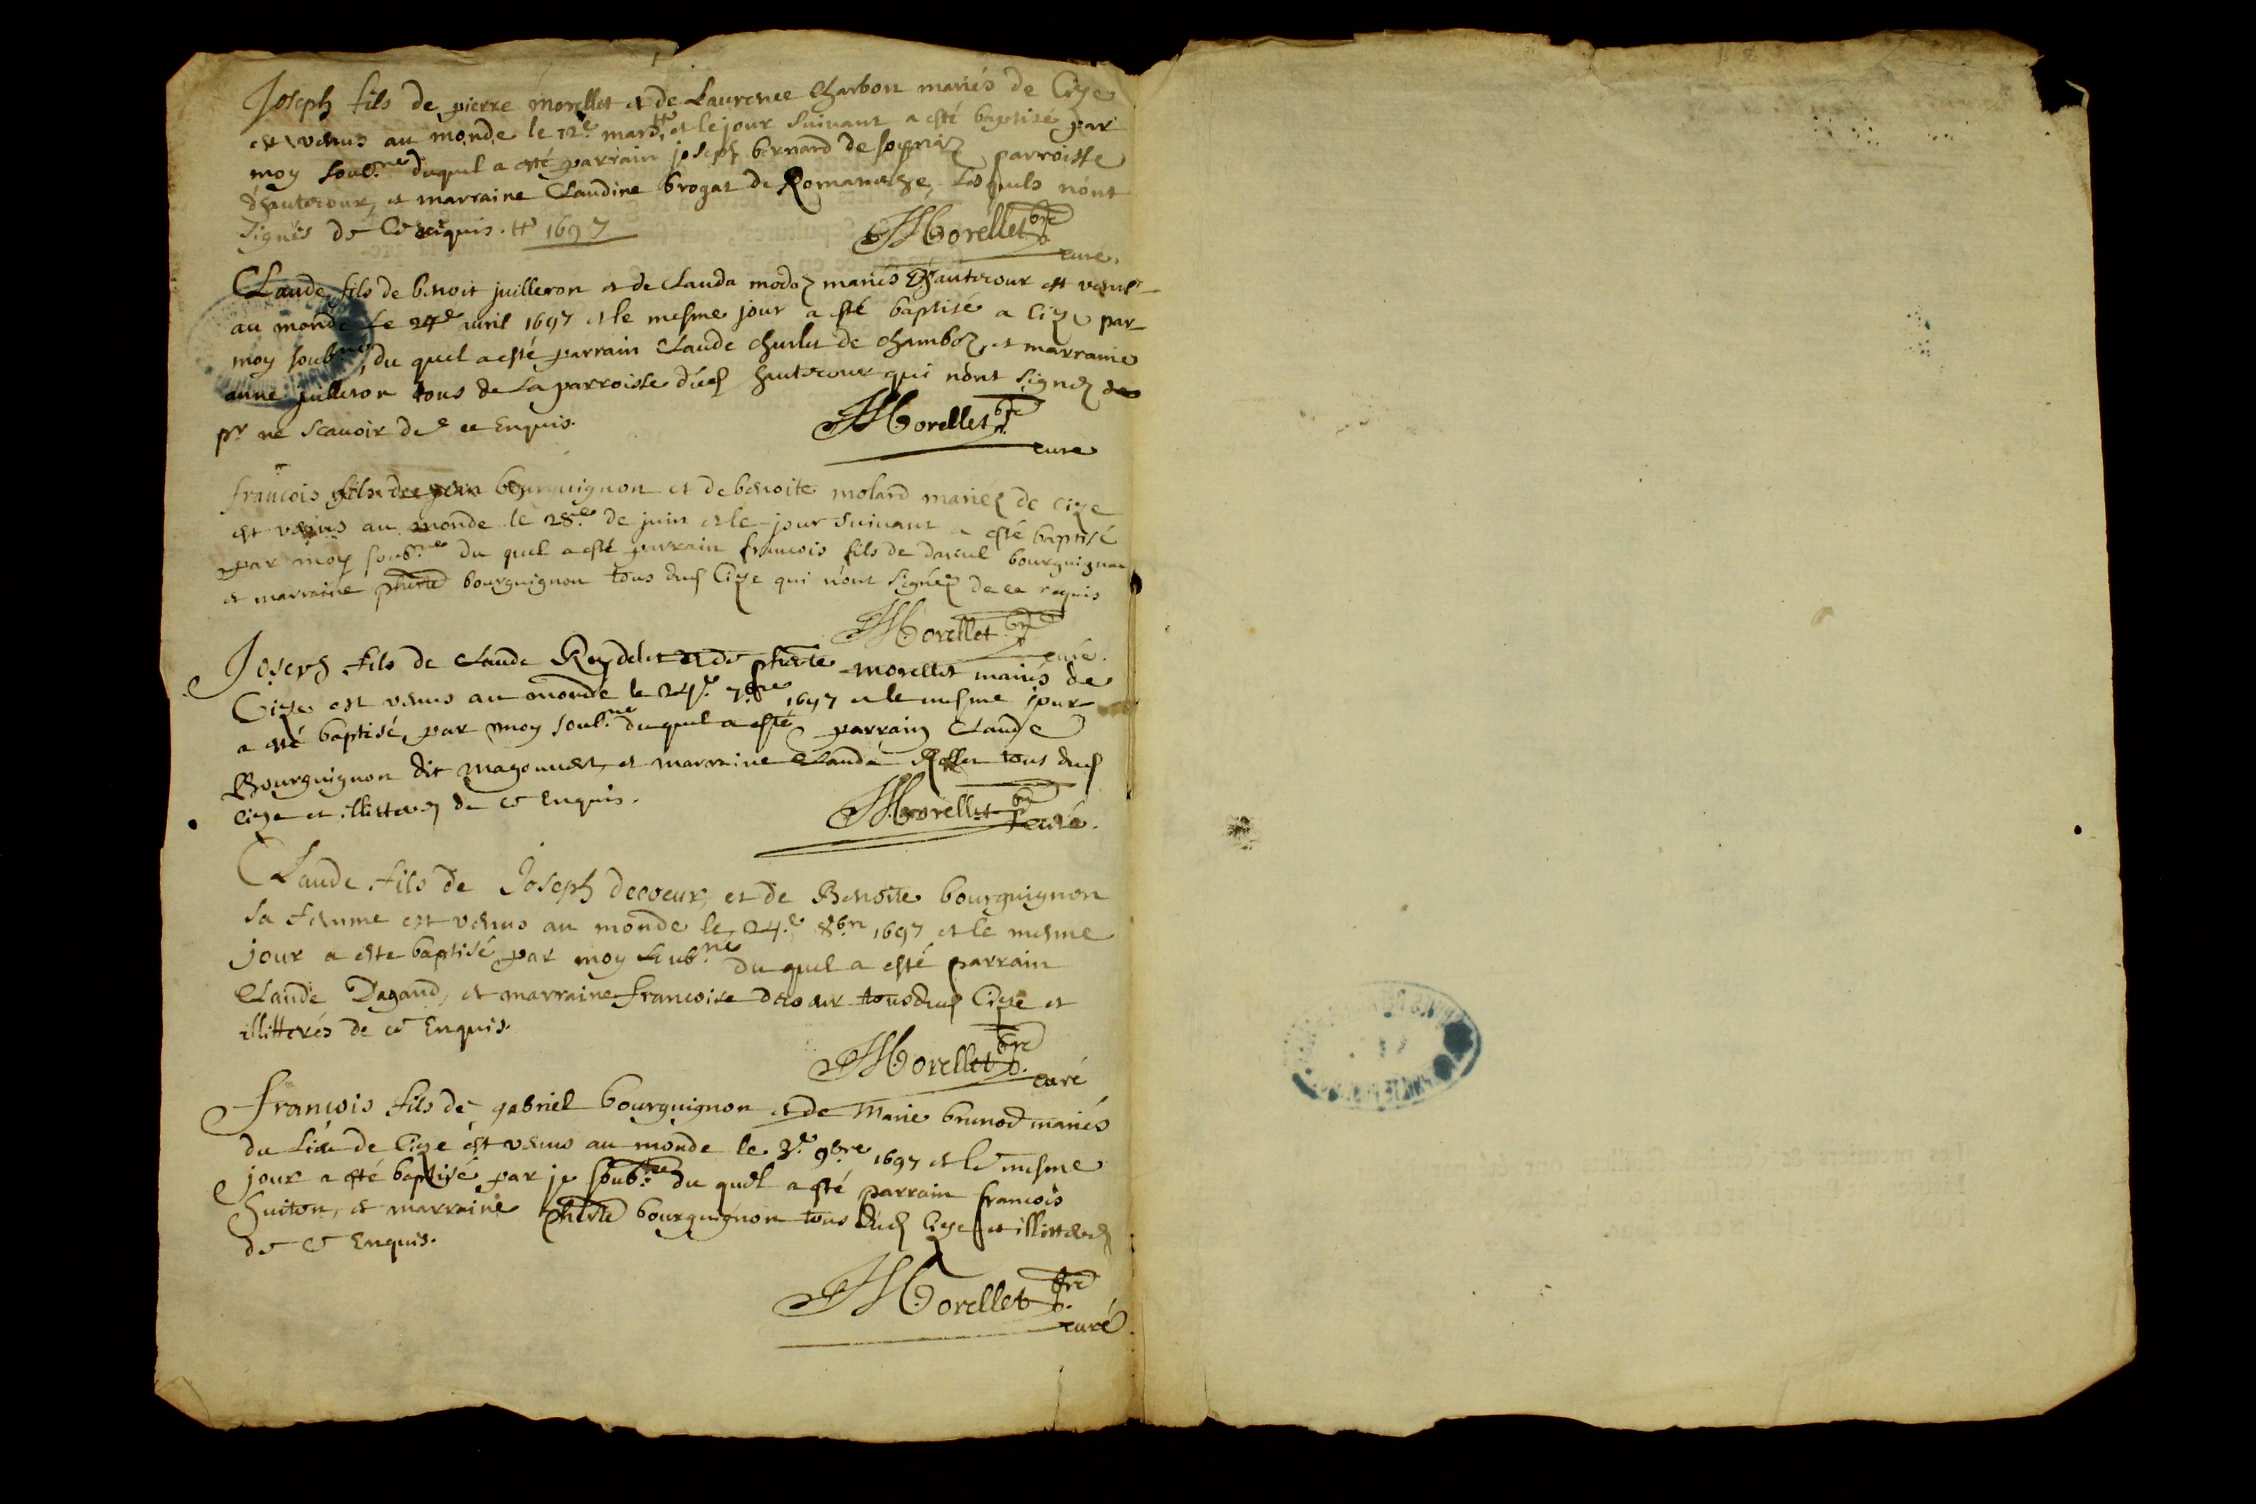 Joseph fils de pierre morellet et de Laurence Charbon mariés de Cize
est venus au monde le 12e mars # et le jour suivant a esté baptisé par
moy soub.ne duquel a esté parrain joseph bernard de parroisse
d'hautecour, et marraine Claudine brogat de Romaneche, Lesquels n'ont
signés de Ce requis. # 1697
Morellet pbre
curé.
Claude fils de benoit juilleron et de Clauda modaz mariés d'hautecour est venus
au monde Le 24e avril 1697 et le mesme jour a esté baptisé a Cize par
moy soub.ne du quel a esté parrain Claude churlet de chamboz, et marraine
anne julleron tous de La parroisse hautecour qui n'ont signez
pr ne scavoir de ce Enquis.
Morellet pbre
curé
francois fils de bourguignon et de benoite molard mariéz de Cize
est venus au monde le 28.e de juin et le jour suivant a esté baptisé
par moy soub.ne du quel a esté parrain francois fils de bourguignon
et marraine bourguignon tous Cize qui n'ont signéz de ce requis
Morellet pbre
curé.
Joseph fils de Claude Reydelet et de morellet mariés de
Cize est venus au monde le 24.e 7.bre 1697 et le mesme jour
a esté baptisé, par moy soub.ne duquel a esté parrain Claude
Bourguignon dit et marraine Clauda tous
Cize et de ce Enquis.
Morellet pbre
curé.
Claude fils de Joseph decoeur, et de Benoite bourguignon
sa femme est venus au monde le 24.e 8bre 1697 et le mesme
jour a este baptisé par moy soub.ne du quel a esté parrain
Claude Dagand, et marraine francoise decoeur tous Cize et
illitterés de ce Enquis.
Morellet pbre
curé
francois fils de gabriel bourguignon et de Marie brunod mariés
du Lieu de Cize est venus au monde le 3.e 9bre 1697 et le mesme
jour a esté baptisé par je soub.ne du quel a esté parrain francois
huiton, et marraine bourguignon tous Cize et
de ce Enquis.
Morellet pbre
curé